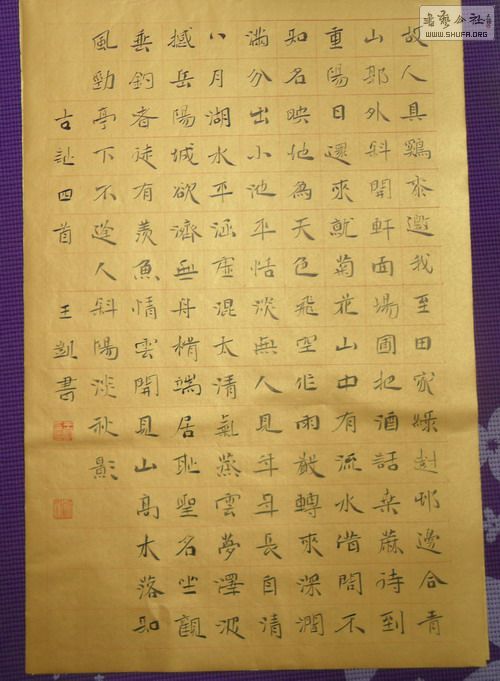 故人具鷄黍邀我至田家綠樹邨邊合青
山郭外斜開軒面場圃把酒話桑蔴待到
重陽日還來就菊花山中有流水借問不
知名映地為天色飛空作雨聲轉來深澗
滿分出小池平恬淡無人見年年長自清
八月湖水平涵虛混太清氣蒸雲夢澤波
撼岳陽城欲濟無舟楫端居恥聖名坐觀
垂釣者徒有羨魚情雲開見山高木落知
風勁亭下不逢人斜陽淡秋影
古詩四首 王凱書
書藝公社
WWW.SHUFA.ORG